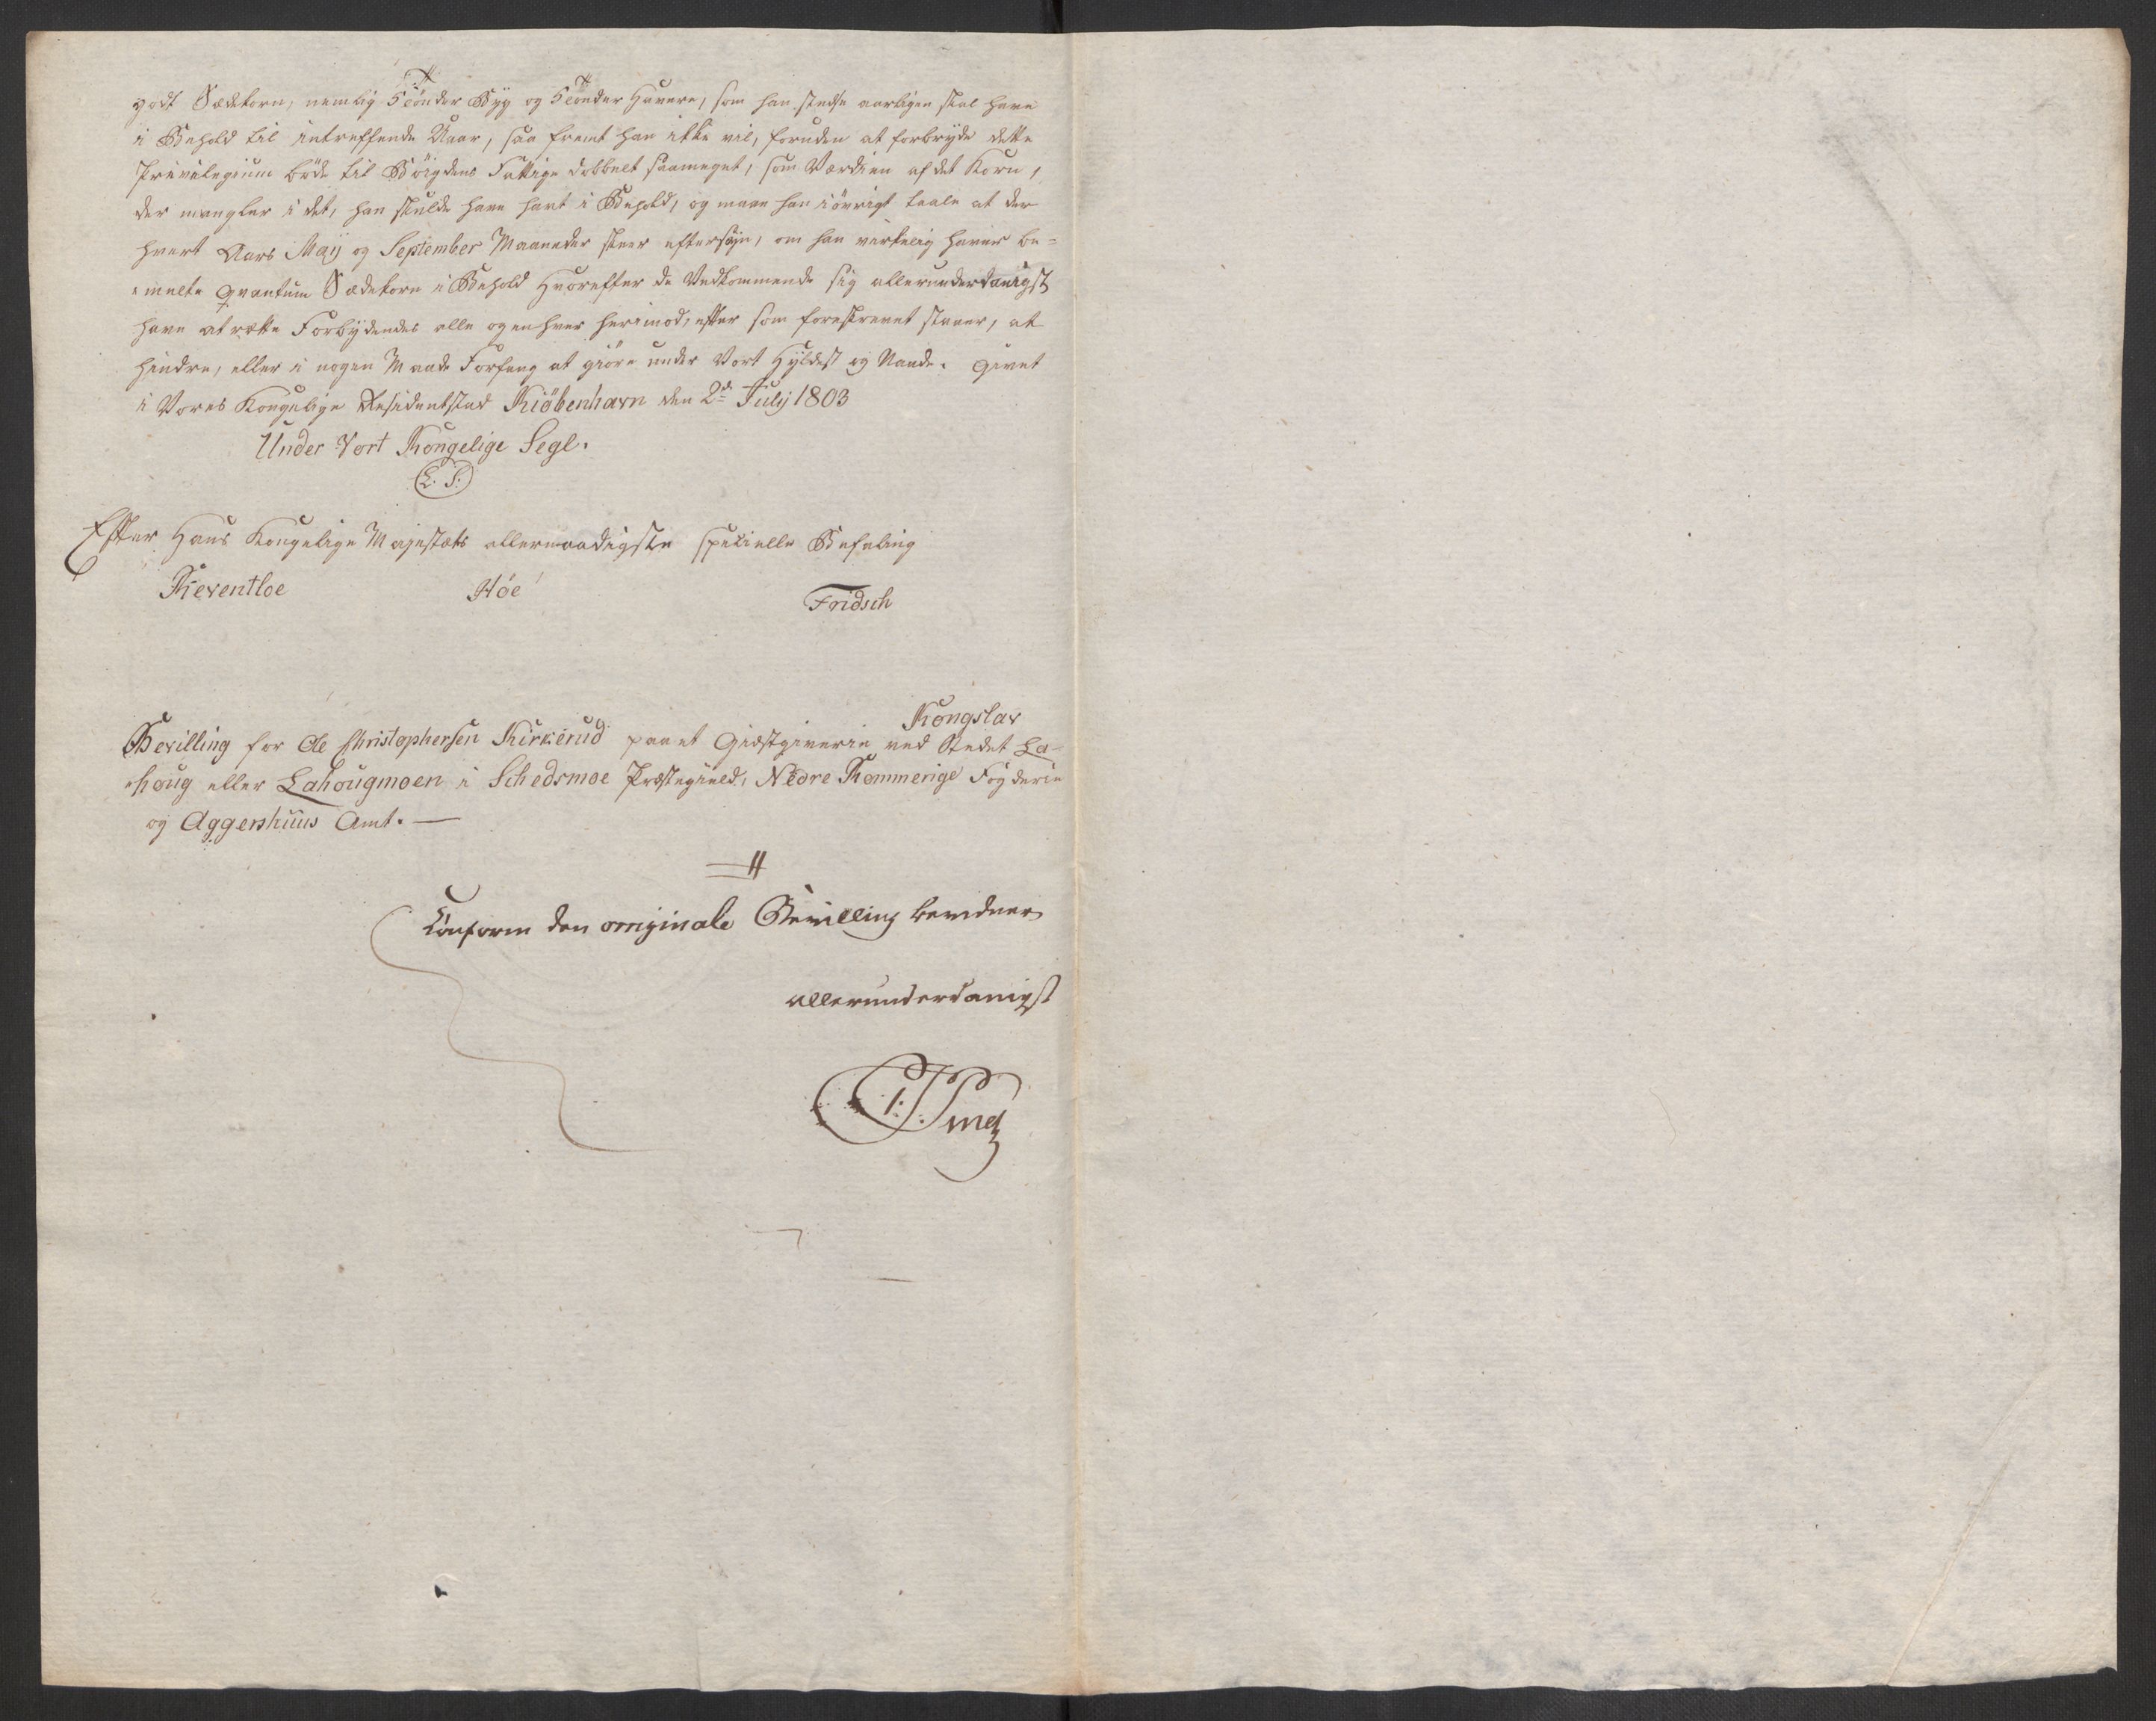 godt Sædekorn, nemlig 5 Tönder Byg og 5 Tönder Havere, som han stedse aarligen skal have
i Behold til intreffende Uaar, saa fremt han ikke vil, foruden at forbryde dette
Privilegium böde til Böigdens Fattige dobbelt saameget, som Værdien af det Korn,
der mangler i det, han skulde have havt i Behold, og maae han iövrigt taale at der
hvert Aars Maÿ og September Maaneder skeer eftersÿn, om han virkelig haver be=
=melte Qvantum Sædekorn i Behold Hvorefter de Vedkommende sig allerunderdanigst
have at rette Forbÿdendes alle og enhver herimod, efter som foreskrevet staaer, at
hindre, eller i nogen Maade Forfang at giöre under Vort Hÿldest og Naade. Givet
i Vores Kongelige Residentstad Kiöbenhavn den 2de Julÿ 1803
Under Vort Kongelige Segl.
L. S.
Efter Hans Kongelige Majestæts allernaadigste specielle Befaling
Reventloe Höe Fridsch
Kongslav
Bevilling for Ole Christophersen Kirkerud paa et Giæstgiverie ved Stedet La-
=houg eller Lahougmoen i Schedsmoe Præstegield, Nedre Rommerige Fogderie
og Aggershuus Amt. —
Conform den originale Bevilling bevidner
allerunderdanigst